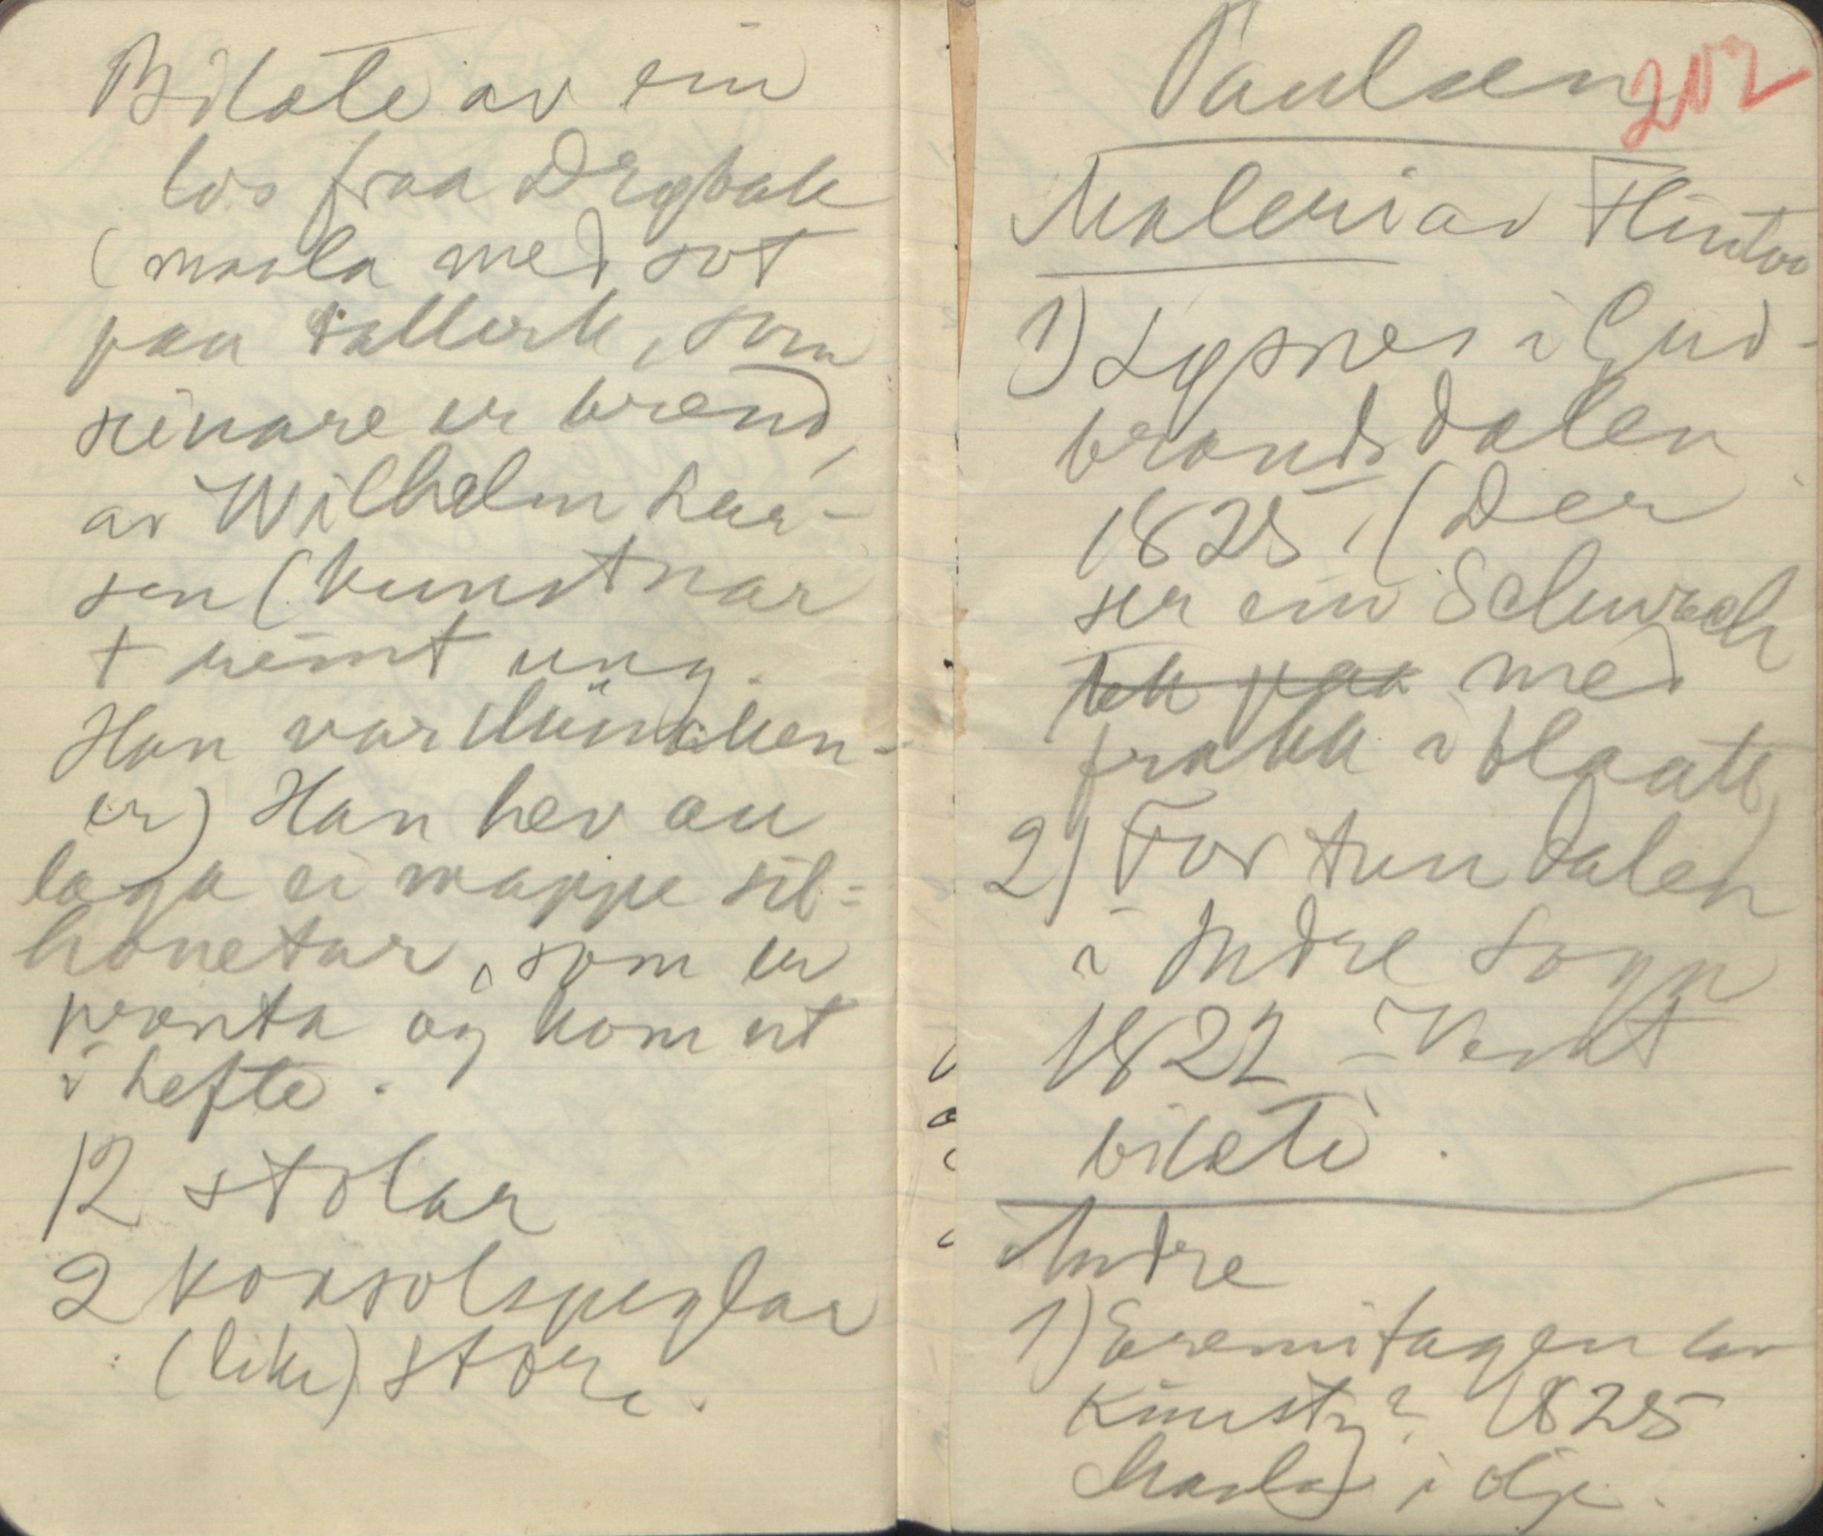 Bilæte av ein
los fraa Drøbak
(maala med sot
paa tallerk, som
seinare er brend,
av Wilhelm Lar-
sen (kunstnar
+ heimt ung.
Han var München-
er) Han hev au
laga ei mappe sil-
houetar, som er
prenta og kom ut
i hefte.
12 stolar
2 konsolspeglar
(like) store.
Paulsen
202
Maleri av Flintoe
1) Lysnes i Gud-
brandsdalen
1825. (Der
ser ein Schwach
med
frakk i blaatt)
2) Fortundalen
i Indre Sogn
1822 – Vent
bilæte.
Andre
1) Eremitagen av
? 1825
Maala i olje.